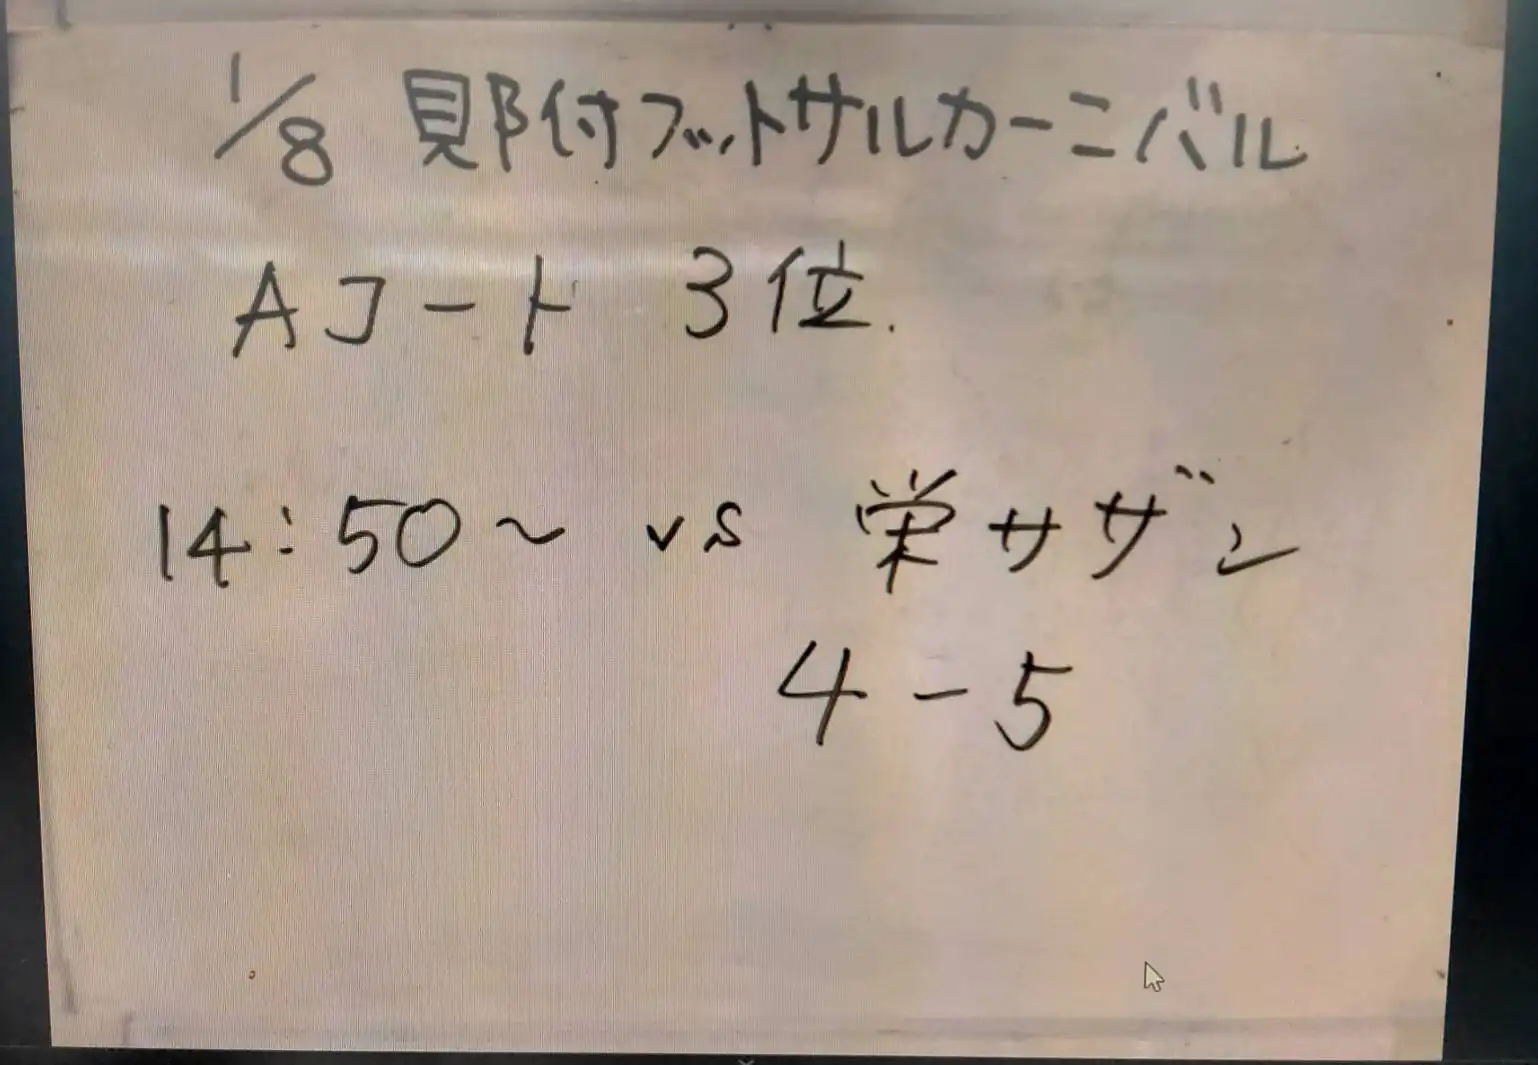 1/8 見附フットサルカーニバル
Aコート 3位.
14:50~ vs 栄サザン
4-5